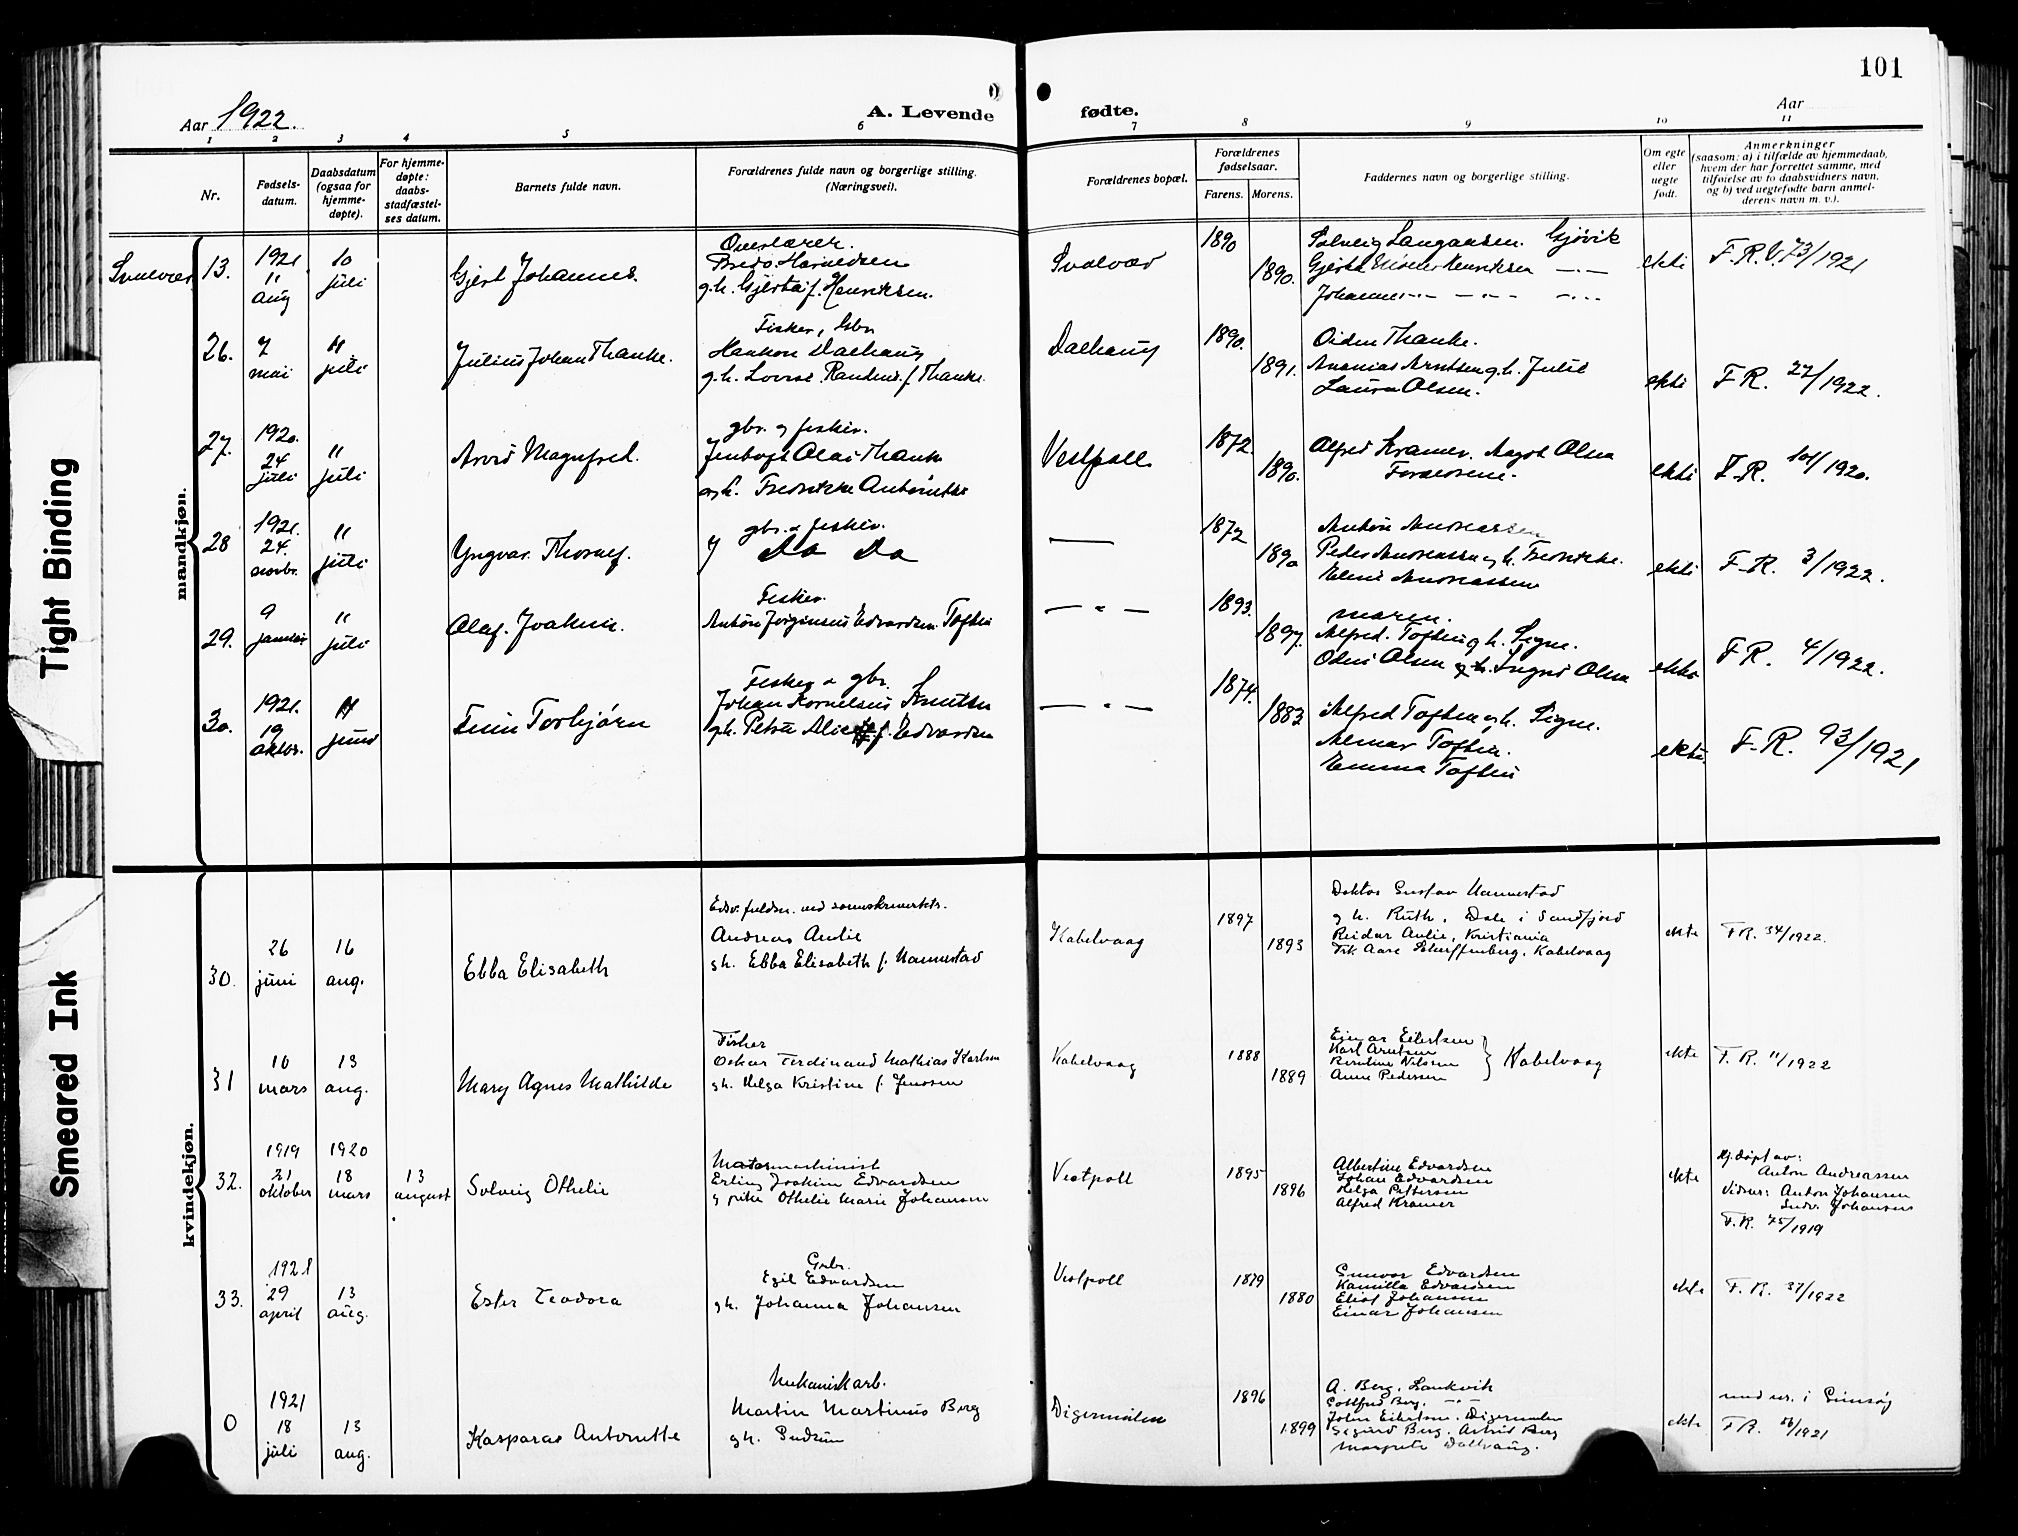 Tight Binding
Smeared Ink
101
Aar 1922.
A. Levende fødte.
Aar
1 2 3 4 5 6 7 8 9 10 11
Nr.
Fødsels-
datum.
Daabsdatum
(ogsaa for
hjemme-
døpte).
For hjemme-
døpte:
daabs-
stadfæstel-
ses datum.
Barnets fulde navn.
Forældrenes fulde navn og borgerlige stilling.
(Næringsvei).
Forældrenes bopæl.
Forældrenes
fødselsaar.
Farens. Morens.
Faddernes navn og borgerlige stilling.
Om egte
eller
uegte
født.
Anmerkninger
(saasom: a) i tilfælde av hjemmedaab,
hvem der har forrettet samme, med
tilføielse av to daabsvidners navn,
og b) ved uegtefødte barn anmel-
derens navn m. v.).
mandkjøn.
13.
1921
11
aug
10
juli
Gjert Johannes.
g.h. Gjerta f. Henriksen.
Svolvær
1890
1890.
Solveig Langaasen. Gjøvik
Johannes
ekte
F.R. 73/1921
26.
7
mai
11
juli
Julius Johan Thanke.
Fisker, gbr
Haakon Dalhaug
g.h. Lovise Randine f. Thanke.
Dalhaug
1890.
1891.
Thanke.
Ananias Arntsen g.h. Julie
Laura Olsen.
ekte
F.R. 27/1922.
27.
1920.
24
juli
"
juli
Arvid Magnfred.
gbr. og fisker.
Olai Thanke
og h. Fredrikke Antonette
Vestpoll
1872.
1890.
Alfred Kramer. Aagot Olsen
Foreldrene.
ekte
F.R. 101/1920.
28
1921.
24.
novbr.
"
juli
Yngvar Thoralf.
gbr. & fisker.
Do Do
1872
1890
Anton Andreassen
Peder Andreassen og h. Fredrikke.
Andreassen
ekte
F.R. 3/1922.
29.
9
januar
"
juli
Olaf. Joakim.
Fisker.
Anton Jørginius Edvardsen Toften
— " —
1893.
1897.
Maren.
Alfred. Toften g h. Signe.
Olsen og h. Ingrid Olsen
ekte
F.R. 4/1922.
30.
1921.
19
oktbr.
11
juni
Finn Torbjørn
Fisker & gbr.
Johan Kornelius Knutsen
gh. Petra Alice f. Edvardsen
— " —
1874.
1883
Alfred Toften og h. Signe.
Toften.
Emma Toften
ekte.
F.R. 93/1921
kvindekjøn.
30.
26
juni
16
aug.
Ebba Elisabeth
Andreas Aulie
gh. Ebba Elisabeth f. Hannestad
Kabelvaag
1897
1893
Doktor Gustav Hannestad
g h. Ruth, Dale i Sandfjord
Reidar Aulie, Kristiania
Frk. Aase Scharffenberg, Kabelvaag
ekte
F.R. 34/1922.
31
10
mars
13
aug.
Mary Agnes Mathilde
Fisker
Oskar Ferdinand Mathias Karlsen
gh. Helga Kristine f. Jenssen
Kabelvaag
1888
1889
Ejnar Eilertsen
Karl Arntsen
Nilsen
Anna Pedersen
} Kabelvaag
ekte
F.R. 11/1922
32.
1919
21
oktober
1920
18
mars
13
august
Solveig Othelie
Motormaskinist
Erling Joakim Edvardsen
g pike Othelie Marie Johansen
Vestpoll
1895
1896
Albertine Edvardsen
Johan Edvardsen
Helga Pettersen
Alfred Kramer
ekte
Hj.døpt av:
Anton Andreassen
Vidner: Anton Johansen
Johansen
F.R. 75/1919
33.
1921
29
april
13
aug.
Ester Teodora
Gbr.
Egil Edvardsen
gh. Johanna Johansen
Vestpoll
1879
1880
Gunvor Edvardsen
Kamilla Edvardsen
Eliot Johansen
Einar Johansen
ekte
F.R. 37/1922
0
1921
18
juli
13
aug.
Kasparas Antonette
Mekanisk arb.
Martin Martinus Berg
gh. Gudrun
Digermulen
1896
1899
A. Berg, Laukvik
Gottfred Berg, — " —
John Eilertsen, Digermulen
Sigurd Berg, Astrid Berg
Margrete Dalhaug.
ekte
under nr. i Gimsøy
F.R. /1921